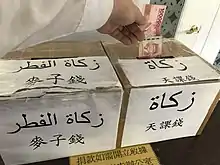 زكاة الفطر
麥子錢
زكاة
天課錢
زكاة الفطر
麥子錢
زكاة
天課錢